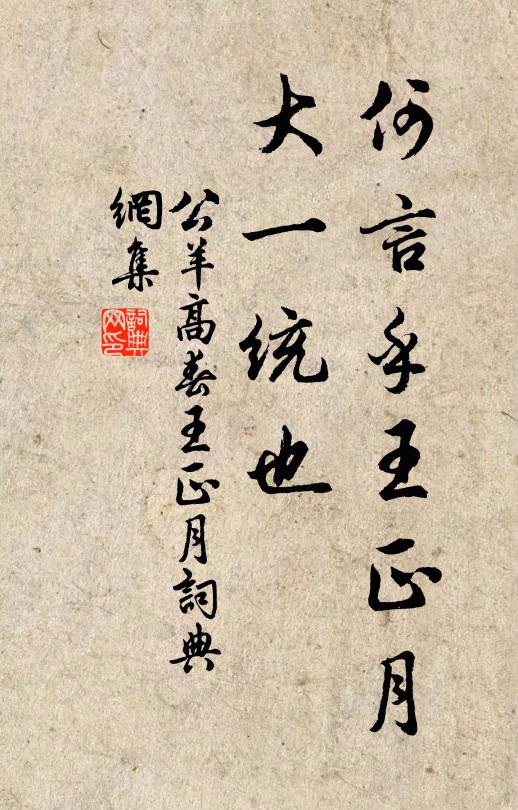 何言乎王正月
大一统也
公羊高春王正月詞典
網集
詞典
网印